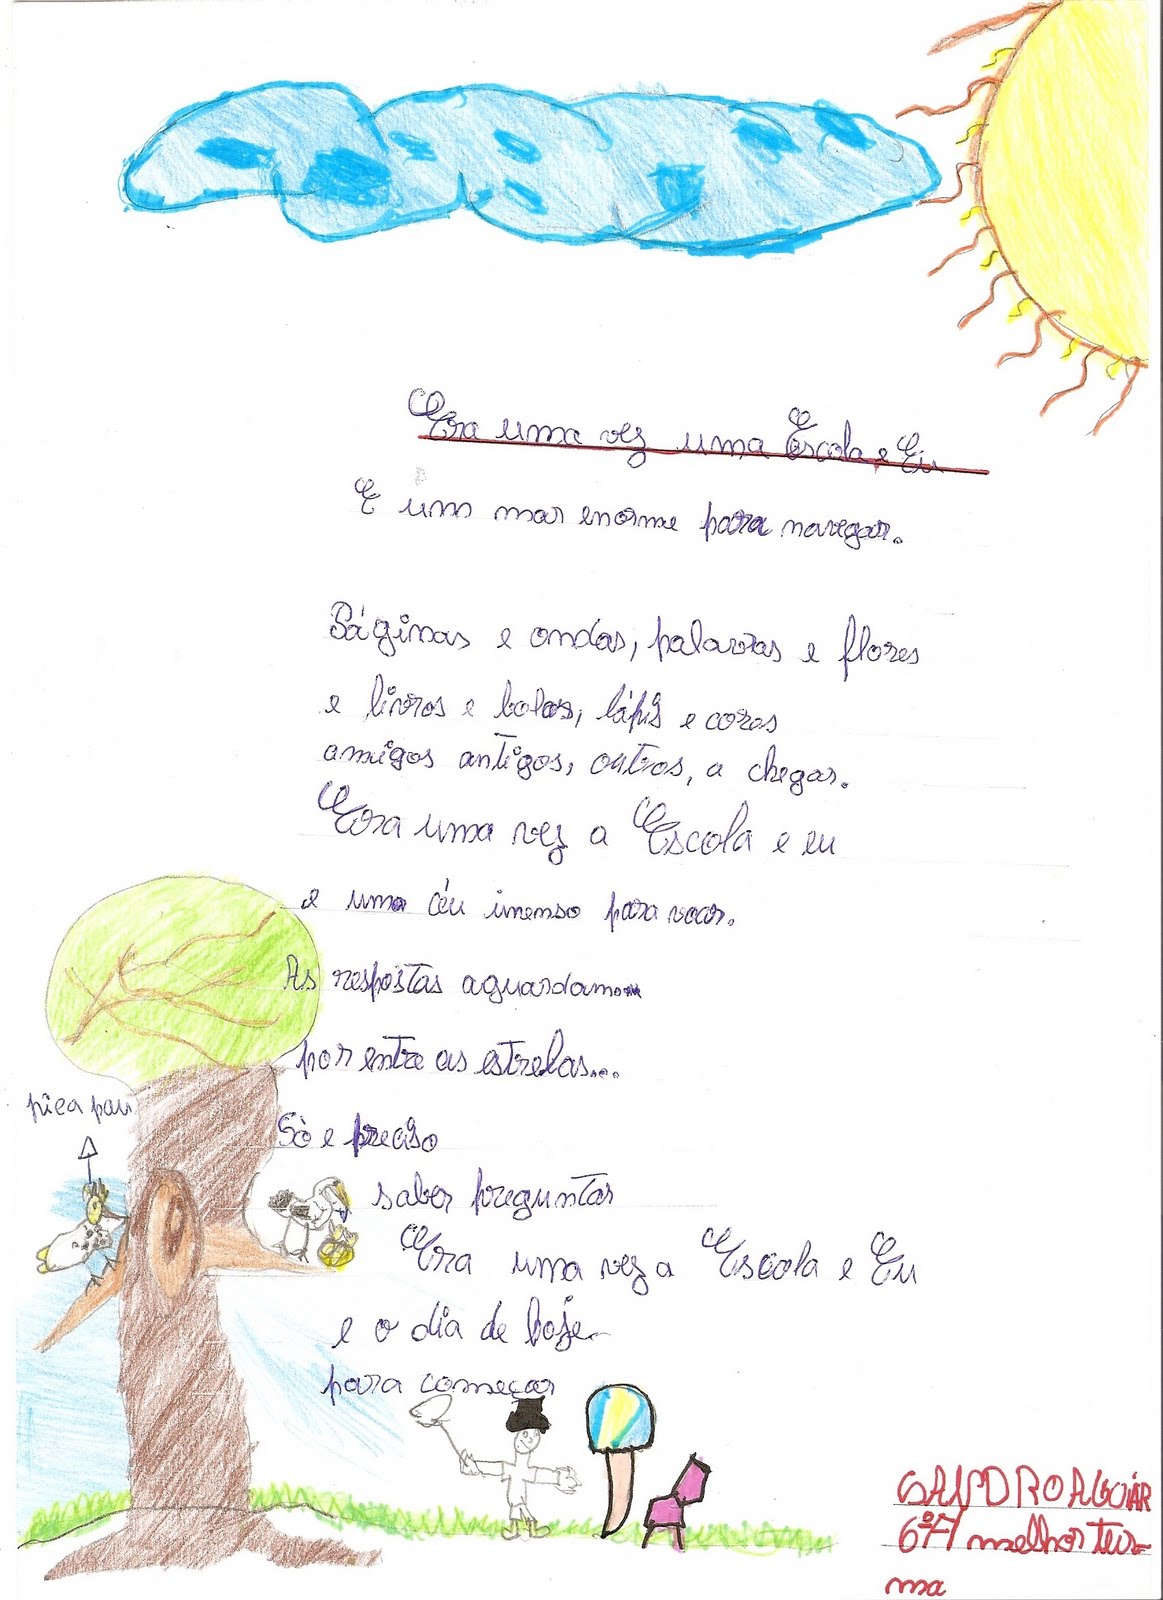 Era uma vez uma Escola e Eu
E um mar enorme para navegar.
Páginas e ondas, palavras e flores
e livros e bolas, lápis e cores
amigos antigos, outros, a chegar.
Era uma vez a Escola e eu
e uma céu imenso para voar.
As respostas aguardam...
por entre as estrelas...
Só e preciso
saber preguntar
Era uma vez a Escola e Eu
e o dia de hoje
para começar
pica pau
SANDRO AGUIAR
6ºA melhor tur-
ma